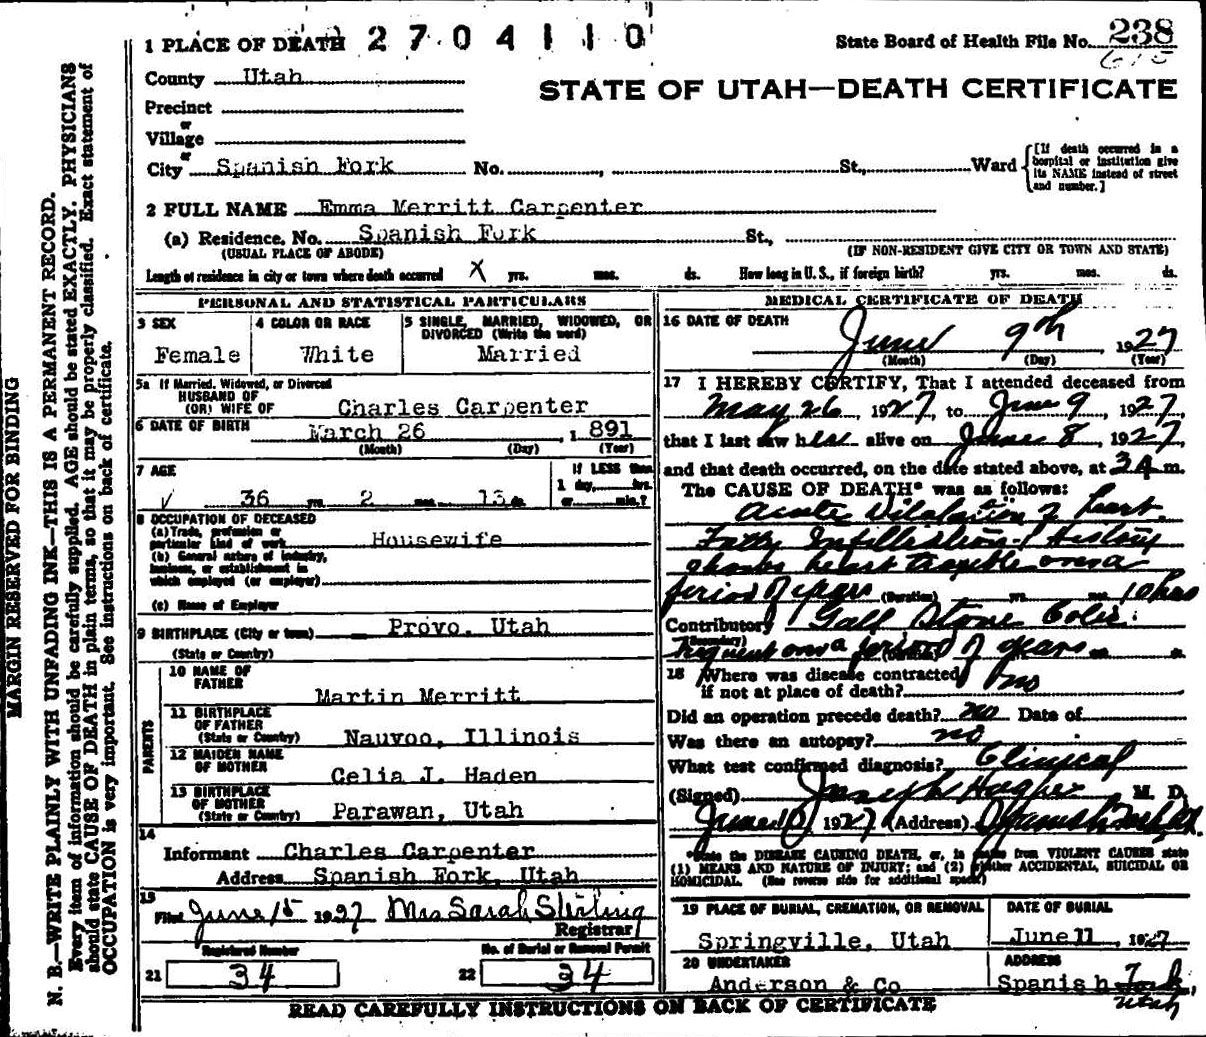 1 PLACE OF DEATH 2 7 0 4 1 1 0
State Board of Health File No. 238
615
County Utah
STATE OF UTAH—DEATH CERTIFICATE
Precinct
or
Village
or
City Spanish Fork No. , St., Ward [If death occurred in a hospital or institution give its NAME instead of street and number.]
2 FULL NAME Emma Merritt Carpenter
(a) Residence, No. Spanish Fork St.,
(USUAL PLACE OF ABODE) (IF NON-RESIDENT GIVE CITY OR TOWN AND STATE)
Length of residence in city or town where death occurred X yrs. mos. ds. How long in U. S., if foreign birth? yrs. mos. ds.
PERSONAL AND STATISTICAL PARTICULARS
3 SEX
Female
4 COLOR OR RACE
White
5 SINGLE, MARRIED, WIDOWED, OR
DIVORCED (Write the word)
Married
5a If Married, Widowed, or Divorced
HUSBAND OF
(OR) WIFE OF Charles Carpenter
6 DATE OF BIRTH March 26 , 1891
(Month) (Day) (Year)
7 AGE
36 yrs. 2 mos. 13 ds.
If LESS than
1 day, hrs.
or min.?
8 OCCUPATION OF DECEASED
(a) Trade, profession or
particular kind of work Housewife
(b) General nature of industry,
business, or establishment in
which employed (or employer)
(c) Name of Employer
9 BIRTHPLACE (City or town) Provo, Utah
(State or Country)
PARENTS
10 NAME OF
FATHER Martin Merritt
11 BIRTHPLACE
OF FATHER
(State or Country) Nauvoo, Illinois
12 MAIDEN NAME
OF MOTHER Celia J. Haden
13 BIRTHPLACE
OF MOTHER
(State or Country) Parawan, Utah
14
Informant Charles Carpenter
Address Spanish Fork, Utah
15
Filed June 15 1927 Mrs Sarah Stirling
Registrar
Registered Number
21 34
No. of Burial or Removal Permit
22 34
MEDICAL CERTIFICATE OF DEATH
16 DATE OF DEATH
June 9th 1927
(Month) (Day) (Year)
17 I HEREBY CERTIFY, That I attended deceased from
May 26, 1927, to June 9, 1927
that I last saw her alive on June 8, 1927,
and that death occurred, on the date stated above, at 3 A m.
The CAUSE OF DEATH* was as follows:
Acute Dilatation of heart.
Fatty Infiltration. History
shows heart trouble over a
period of years (Duration) yrs. mos. 10 hrs
Contributory Gall Stone Colic.
(Secondary)
Frequent over a period of years
18 Where was disease contracted
if not at place of death? no
Did an operation precede death? no Date of
Was there an autopsy? no
What test confirmed diagnosis? Clinical
(Signed) Joseph Hagper M. D.
June 10, 1927 (Address) Spanish Fork Ut.
*State the DISEASE CAUSING DEATH, or, in deaths from VIOLENT CAUSES state
(1) MEANS AND NATURE OF INJURY; and (2) whether ACCIDENTAL, SUICIDAL OR
HOMICIDAL. (See reverse side for additional space)
19 PLACE OF BURIAL, CREMATION, OR REMOVAL
Springville, Utah
DATE OF BURIAL
June 11, 1927
20 UNDERTAKER
Anderson & Co
ADDRESS
Spanish Fork,
Utah
READ CAREFULLY INSTRUCTIONS ON BACK OF CERTIFICATE
MARGIN RESERVED FOR BINDING
N. B.—WRITE PLAINLY WITH UNFADING INK—THIS IS A PERMANENT RECORD.
Every item of information should be carefully supplied. AGE should be stated EXACTLY. PHYSICIANS
should state CAUSE OF DEATH in plain terms, so that it may be properly classified. Exact statement of
OCCUPATION is very important. See instructions on back of certificate.